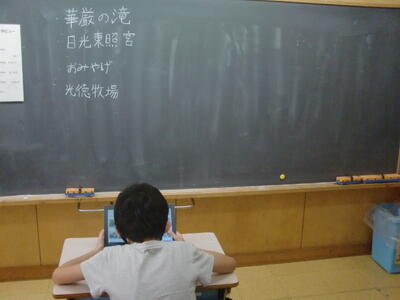 華厳の滝
日光東照宮
おみやげ
光徳牧場